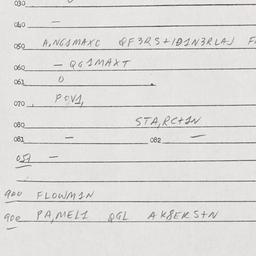 030
040 —
050 A,NG1MAXC QF3RS+1D1N3RLAJ
060 — QG1MAXT
061 0
070 POV1,
080 STA,RC+1N
081 — 082 —
059 —
900 FLOWM1N
900 PA,MEL1 QGL AK8ERS+N